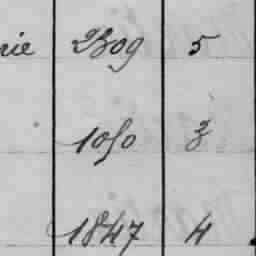 rie 2309 5
1050 3
1847 4